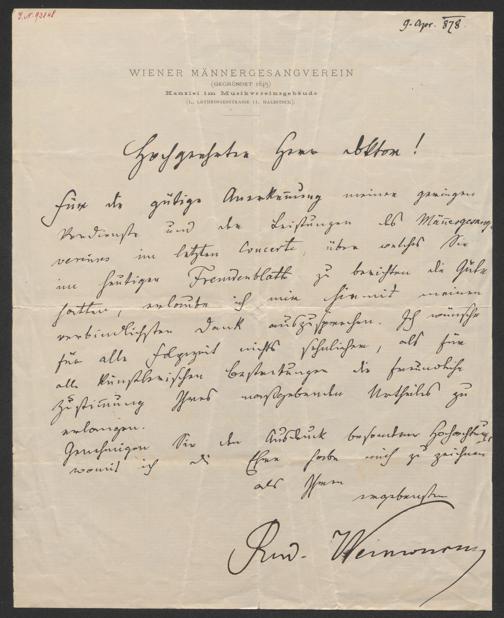 9. Apr. 878.
WIENER MÄNNERGESANGVEREIN
(GEGRÜNDET 1843)
Kanzlei im Musikvereinsgebäude
(I., LOTHRINGERSTRASSE 11, HALBSTOCK)
Hochgeehrter Herr Doktor!
Für die gütige Anerkennung meiner geringen
Verdienste und der Leistungen des Männergesang-
vereines im letzten Concerte, über welches Sie
im heutigen Fremdenblatte zu berichten die Güte
hatten, erlaube ich mir hiermit meinen
verbindlichsten Dank auszusprechen. Ich wünsche
für alle Folgezeit nichts sehnlicher, als für
alle künstlerischen Bestrebungen die freundliche
Zustimmung Ihres maßgebenden Urtheiles zu
erlangen.
Genehmigen Sie den Ausdruck besonderer Hochachtung,
womit ich die Ehre habe mich zu zeichnen
als Ihren
ergebensten
Rud. Weinwurm